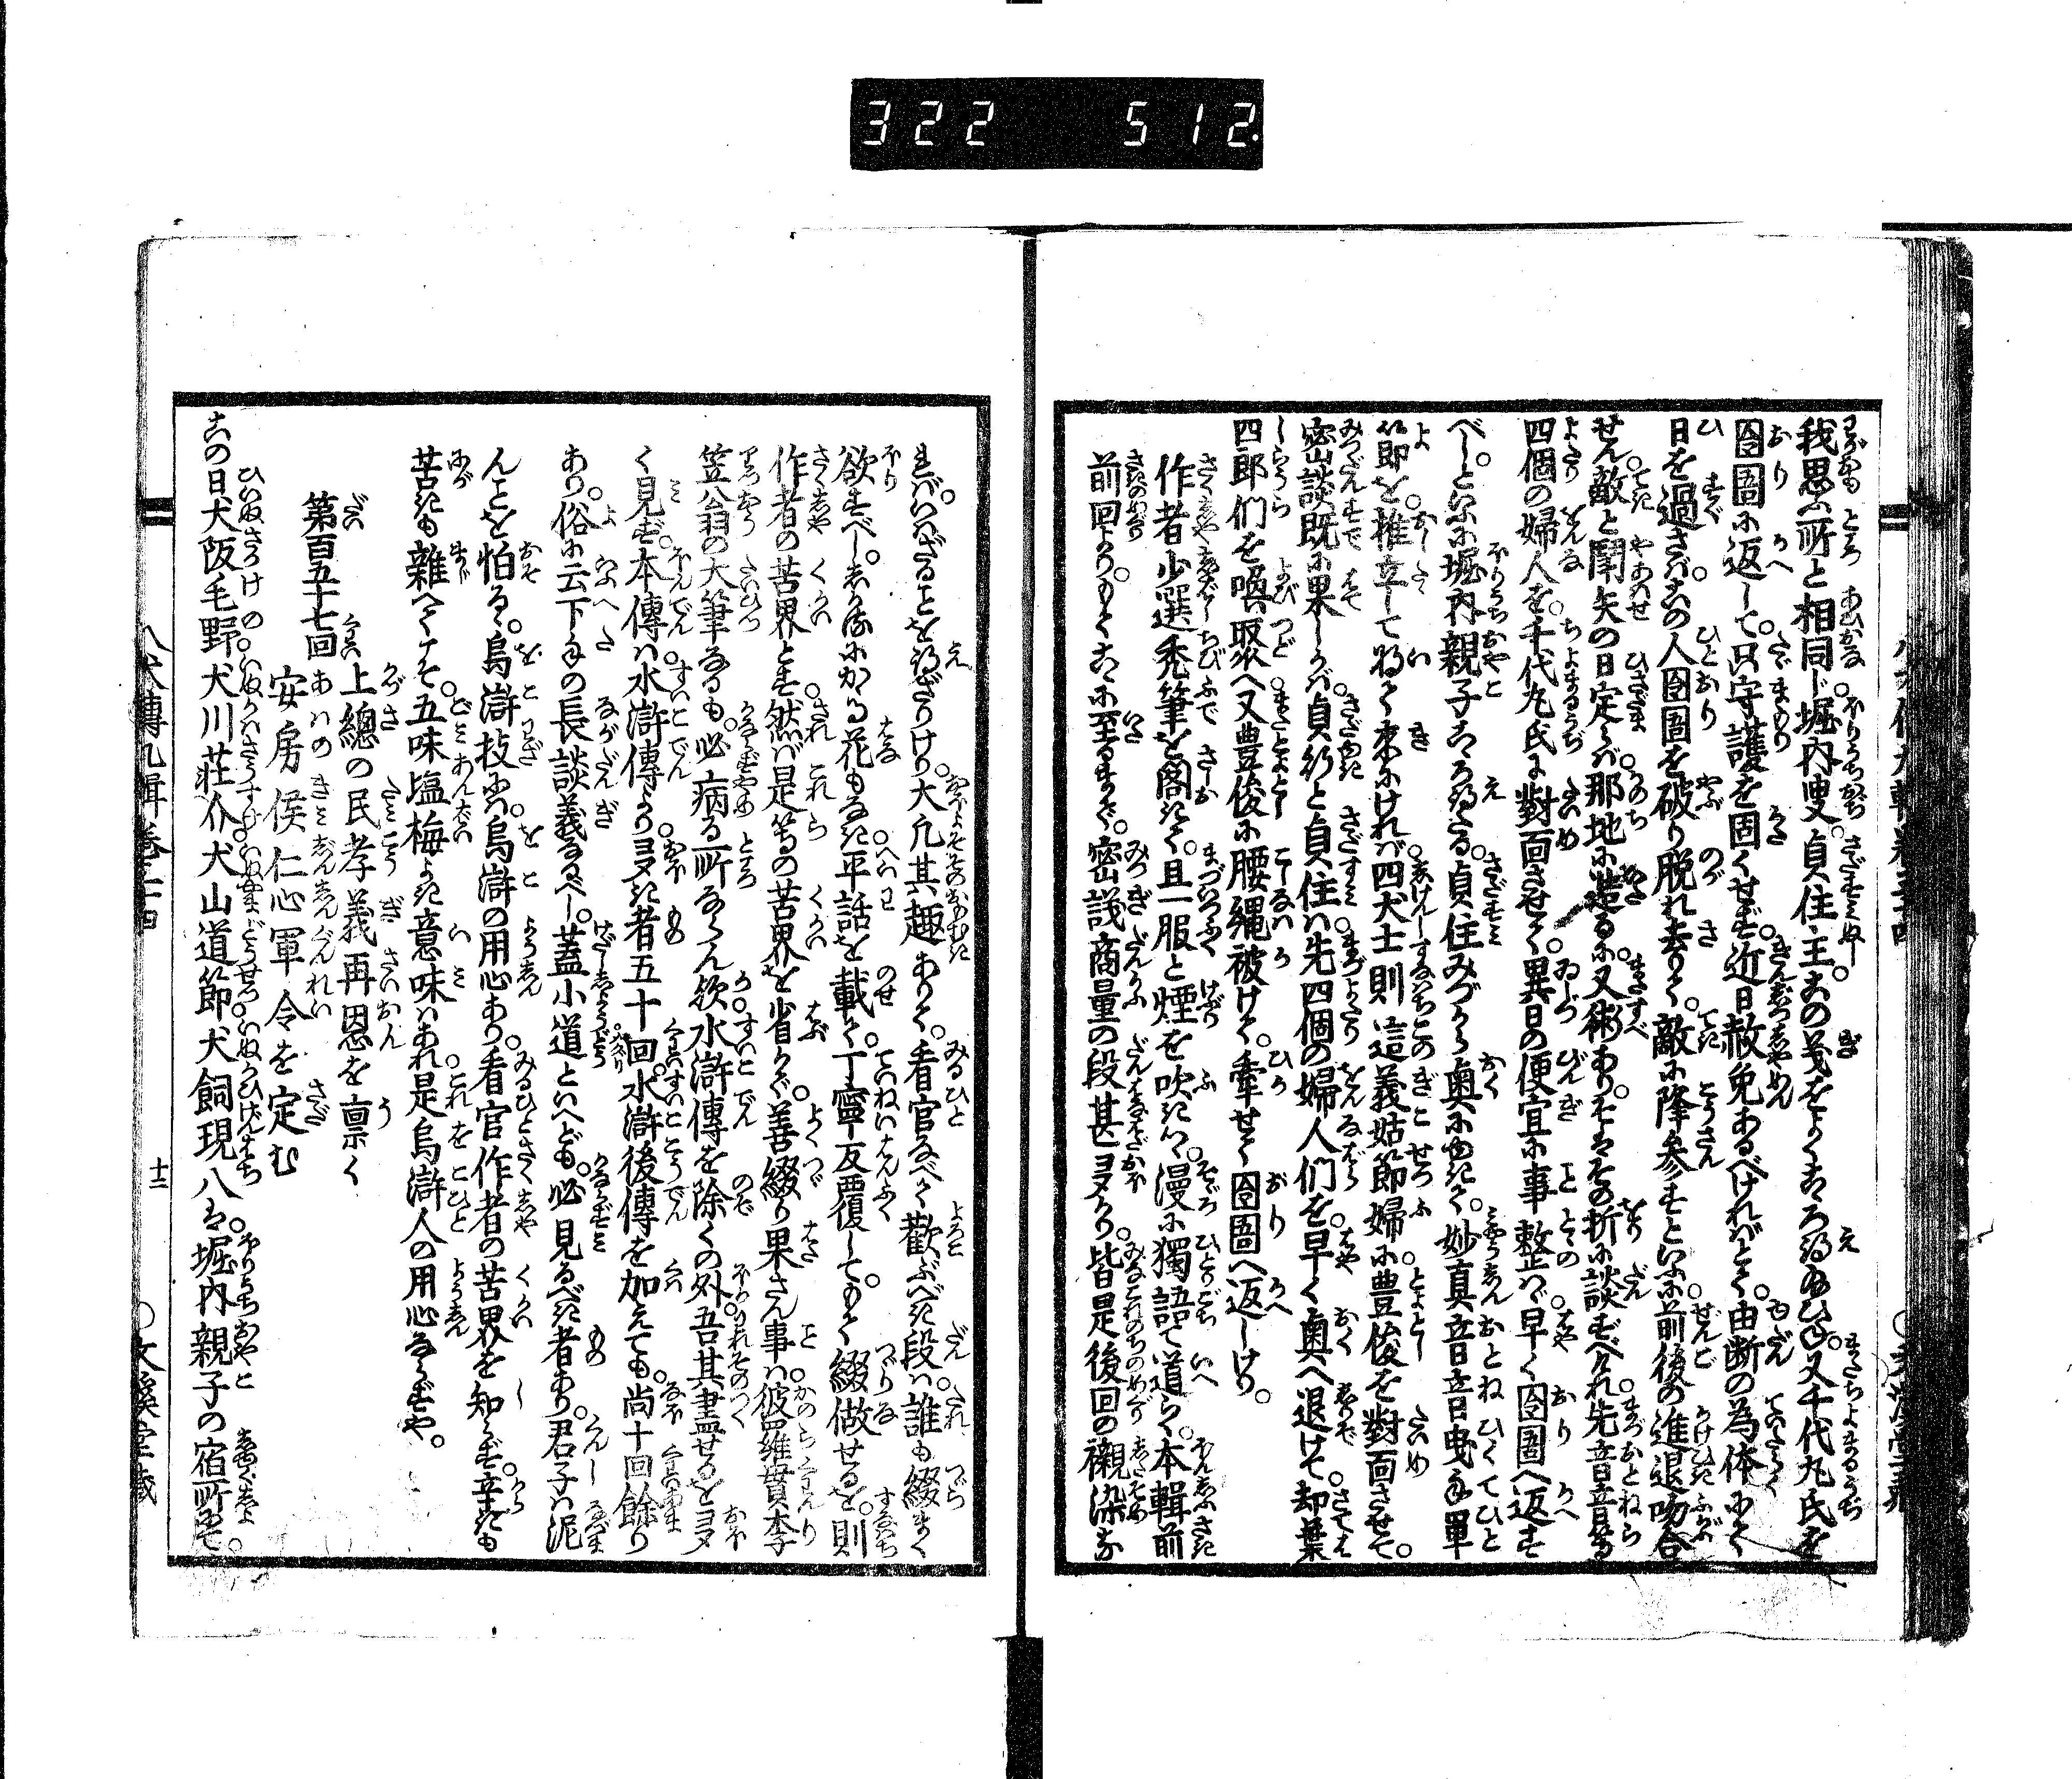 322 512
我思ふ所と相同じ堀内叟貞住主この義をよくこゝろ得給ひね。又千代丸氏を
囹圄に返して只守護を固くせず近日赦免あるべければとて。由断の為体にて
日を過さばこの人囹圄を破り脱れ去りて。敵に降参すといふ前後の進退吻合
せん敵と闘矢の日定らば那地に造るに又術あり。そはその折に談ずべけれ先音音等
四個の婦人を千代丸氏に對面させて。異日の便宜に事整はゞ早く囹圄へ返す
べしといふに堀内親子こゝろ得たる。貞住みづから奥にゆきて。妙真音音曳手單
節を。推立して将て来にければ四犬士則這義姑節婦に豊俊を對面させて。
密談既に果しかば貞行と貞住は先四個の婦人们を。早く奥へ退けて却葉
四郎们を喚聚へ又豊俊に腰縄被けて。牽せて囹圄へ返しけり。
作者少選禿筆を閣きて。且一服と煙を吹きつゝ。漫に獨語て道らく。本輯前
前回より。もてこゝに至るまで。密議商量の段甚ヨタかり。皆是後回の襯染な
ればいはざることを得ざりけり。大凡其趣ありて。看官なべて歡ぶべき段は誰も綴まく
欲すべし。しかるにかゝる花もなき平話を載て。丁寧反覆して。もて綴做せるを。則
作者の苦界とす然ば是等の苦界を省かで。善綴り果さん事は。彼羅貫李
笠翁の大筆なるも。必病る所ならん歟水滸傳を除くの外。吾其書せるをヨタ
く見ず。本傳は水滸傳よりヨタき者五十回。水滸後傳を加えても。尚十回餘り
あり。俗に云下手の長談義なるべし。蓋小道といへども。必見るべき者あり。君子は泥
んことを怕る。烏滸技にも。烏滸の用心あり。看官作者の苦界を知らず辛きも
苦きも雜へてこそ。五味塩梅よき意味はあれ是烏滸人の用心ならずや。
第百五十七回
上總の民孝義再恩を稟く
安房侯仁心軍令を定む
この日犬阪毛野犬川莊介犬山道節犬飼現八は。堀内親子の宿所にて。
八犬傳九輯卷三十四
十二
○文溪堂藏